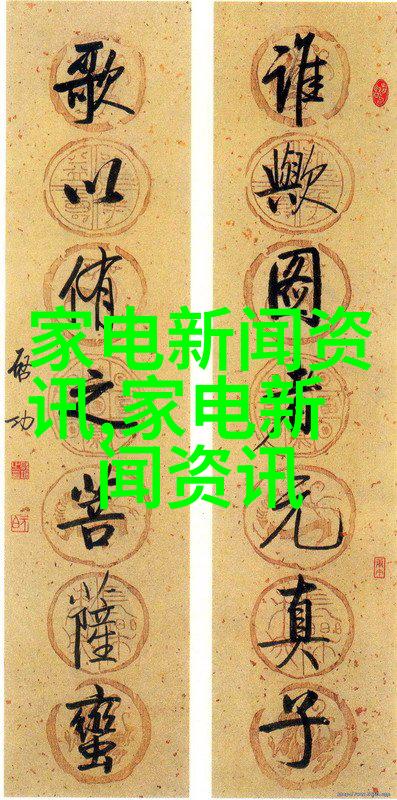 谁歟图元真子
歌以侑之菩薩蠻
启功
家电新闻资
讯,家电新
闻资讯